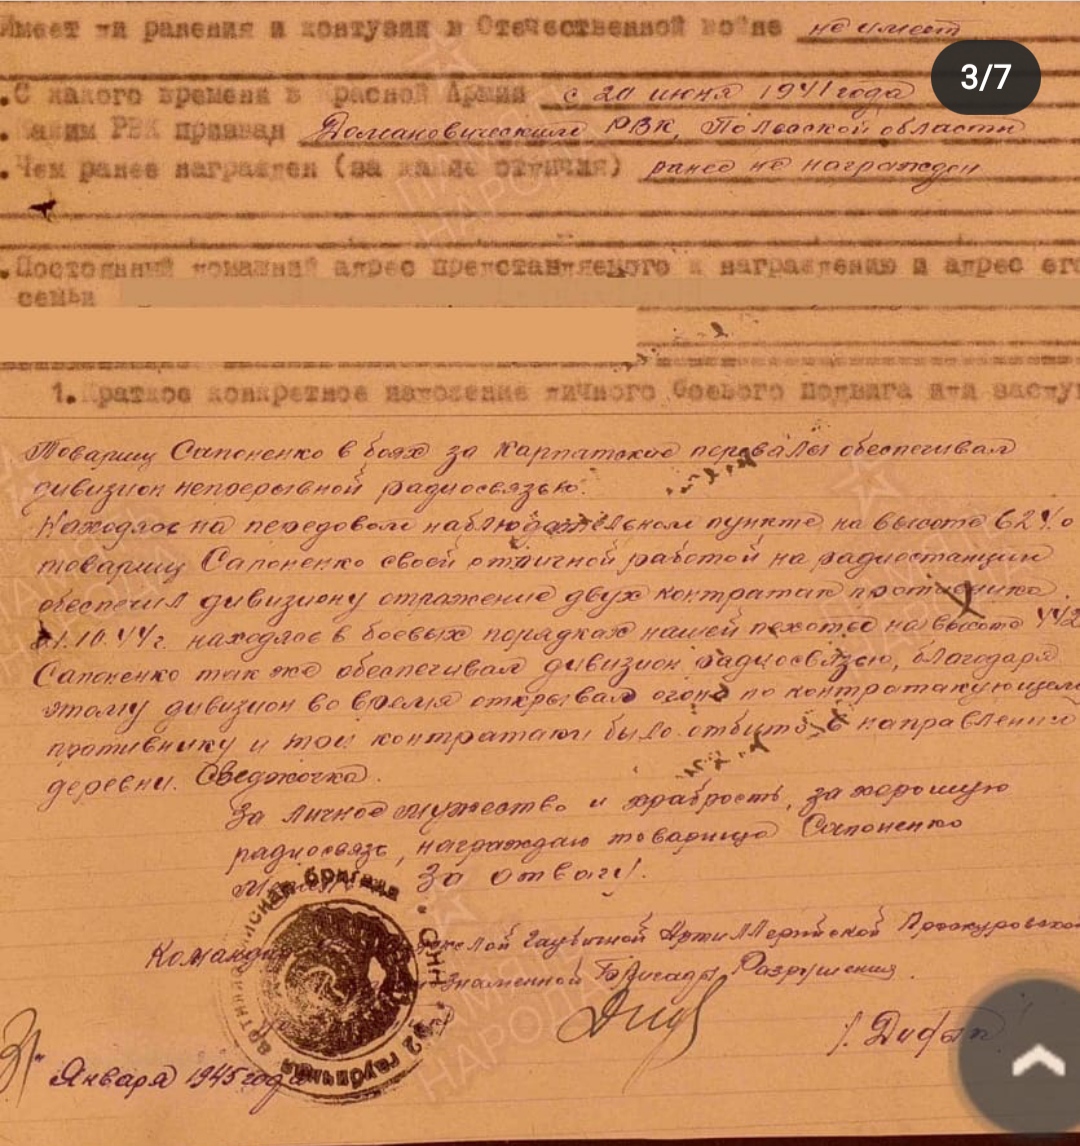 Имеет ли ранения и контузии в Отечественной войне не имеет
3/7
С какого времени в Красной Армии с 20 июня 1941 года
Каким РВК призван Домановическим РВК, Полесской области
Чем ранее награжден (за какие отличия) ранее не награжден
Постоянный домашний адрес представляемого к награждению и адрес его
семьи
1. Краткое конкретное изложение личного боевого подвига или заслуг
Товарищ Сапоненко в боях за Карпатские перевалы обеспечивал
дивизион непрерывной радиосвязью.
Находясь на передовом наблюдательном пункте на высоте
товарищ Сапоненко своей отличной работой на радиостанции
обеспечил дивизиону отражение двух контратак противника.
10.44г. находясь в боевых порядках нашей пехоты на высоте 442
Сапоненко так же обеспечивал дивизион радиосвязью, благодаря
этому дивизион во время открывал огонь по контратакующему
противнику и три контратаки было отбито в направлении
деревни.
За личное мужество и храбрость, за хорошую
радиосвязь, награждаю товарища Сапоненко
За отвагу.
Командир Гаубичной Артиллерийской Проскуровской
Бригады Разрушения.
бригада
гаубичная
Января 1945 года
ПАМЯТЬ
НАРОДА